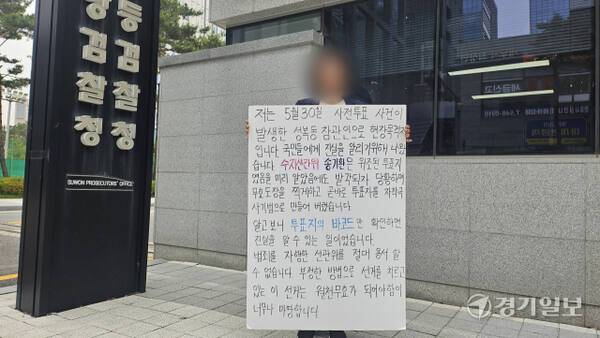 고등검찰청
방검찰청
SUWON PROSECUTORS' OFFICE
저는 5월30일 사전투표 사건이
발생한 성복동 참관인으로 현장목격자
입니다. 국민들에게 진실을 알리기위해 나왔
습니다. 수지선관위 송기환은 위조된 투표지
였음을 미리 알았음에도 발각되자 당황하며
무효도장을 찍게하고 곧바로 투표자를 자작극
사기범으로 만들어 버렸습니다.
알고보니 투표지의 바코드만 확인하면
진실을 알 수 있는 일이었습니다.
범죄를 자행한 선관위를 절대 용서 할
수 없습니다. 부정한 방법으로 선거를 치르고
있는 이 선거는 원천무효가 되어야함이
너무나 마땅합니다.
세금신고
경기일보